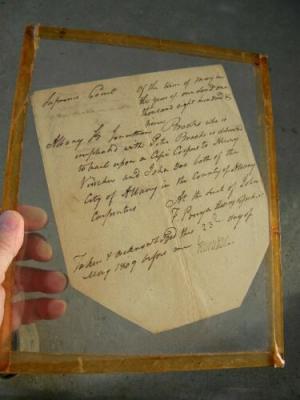 Supreme Court
Of the term of May in
the year of our Lord one
thousand eight hundred &
nine
Albany Ss Jonathan Brooks who is
impleaded with Peter Brooks is delivered
to bail upon a Cepi Corpus to Henry
Visscher and John Bae both of the
City of Albany in the County of Albany
Carpenters
At the suit of John
F. Pruyn
Taken & acknowledged this 23rd day of
May 1809 before me